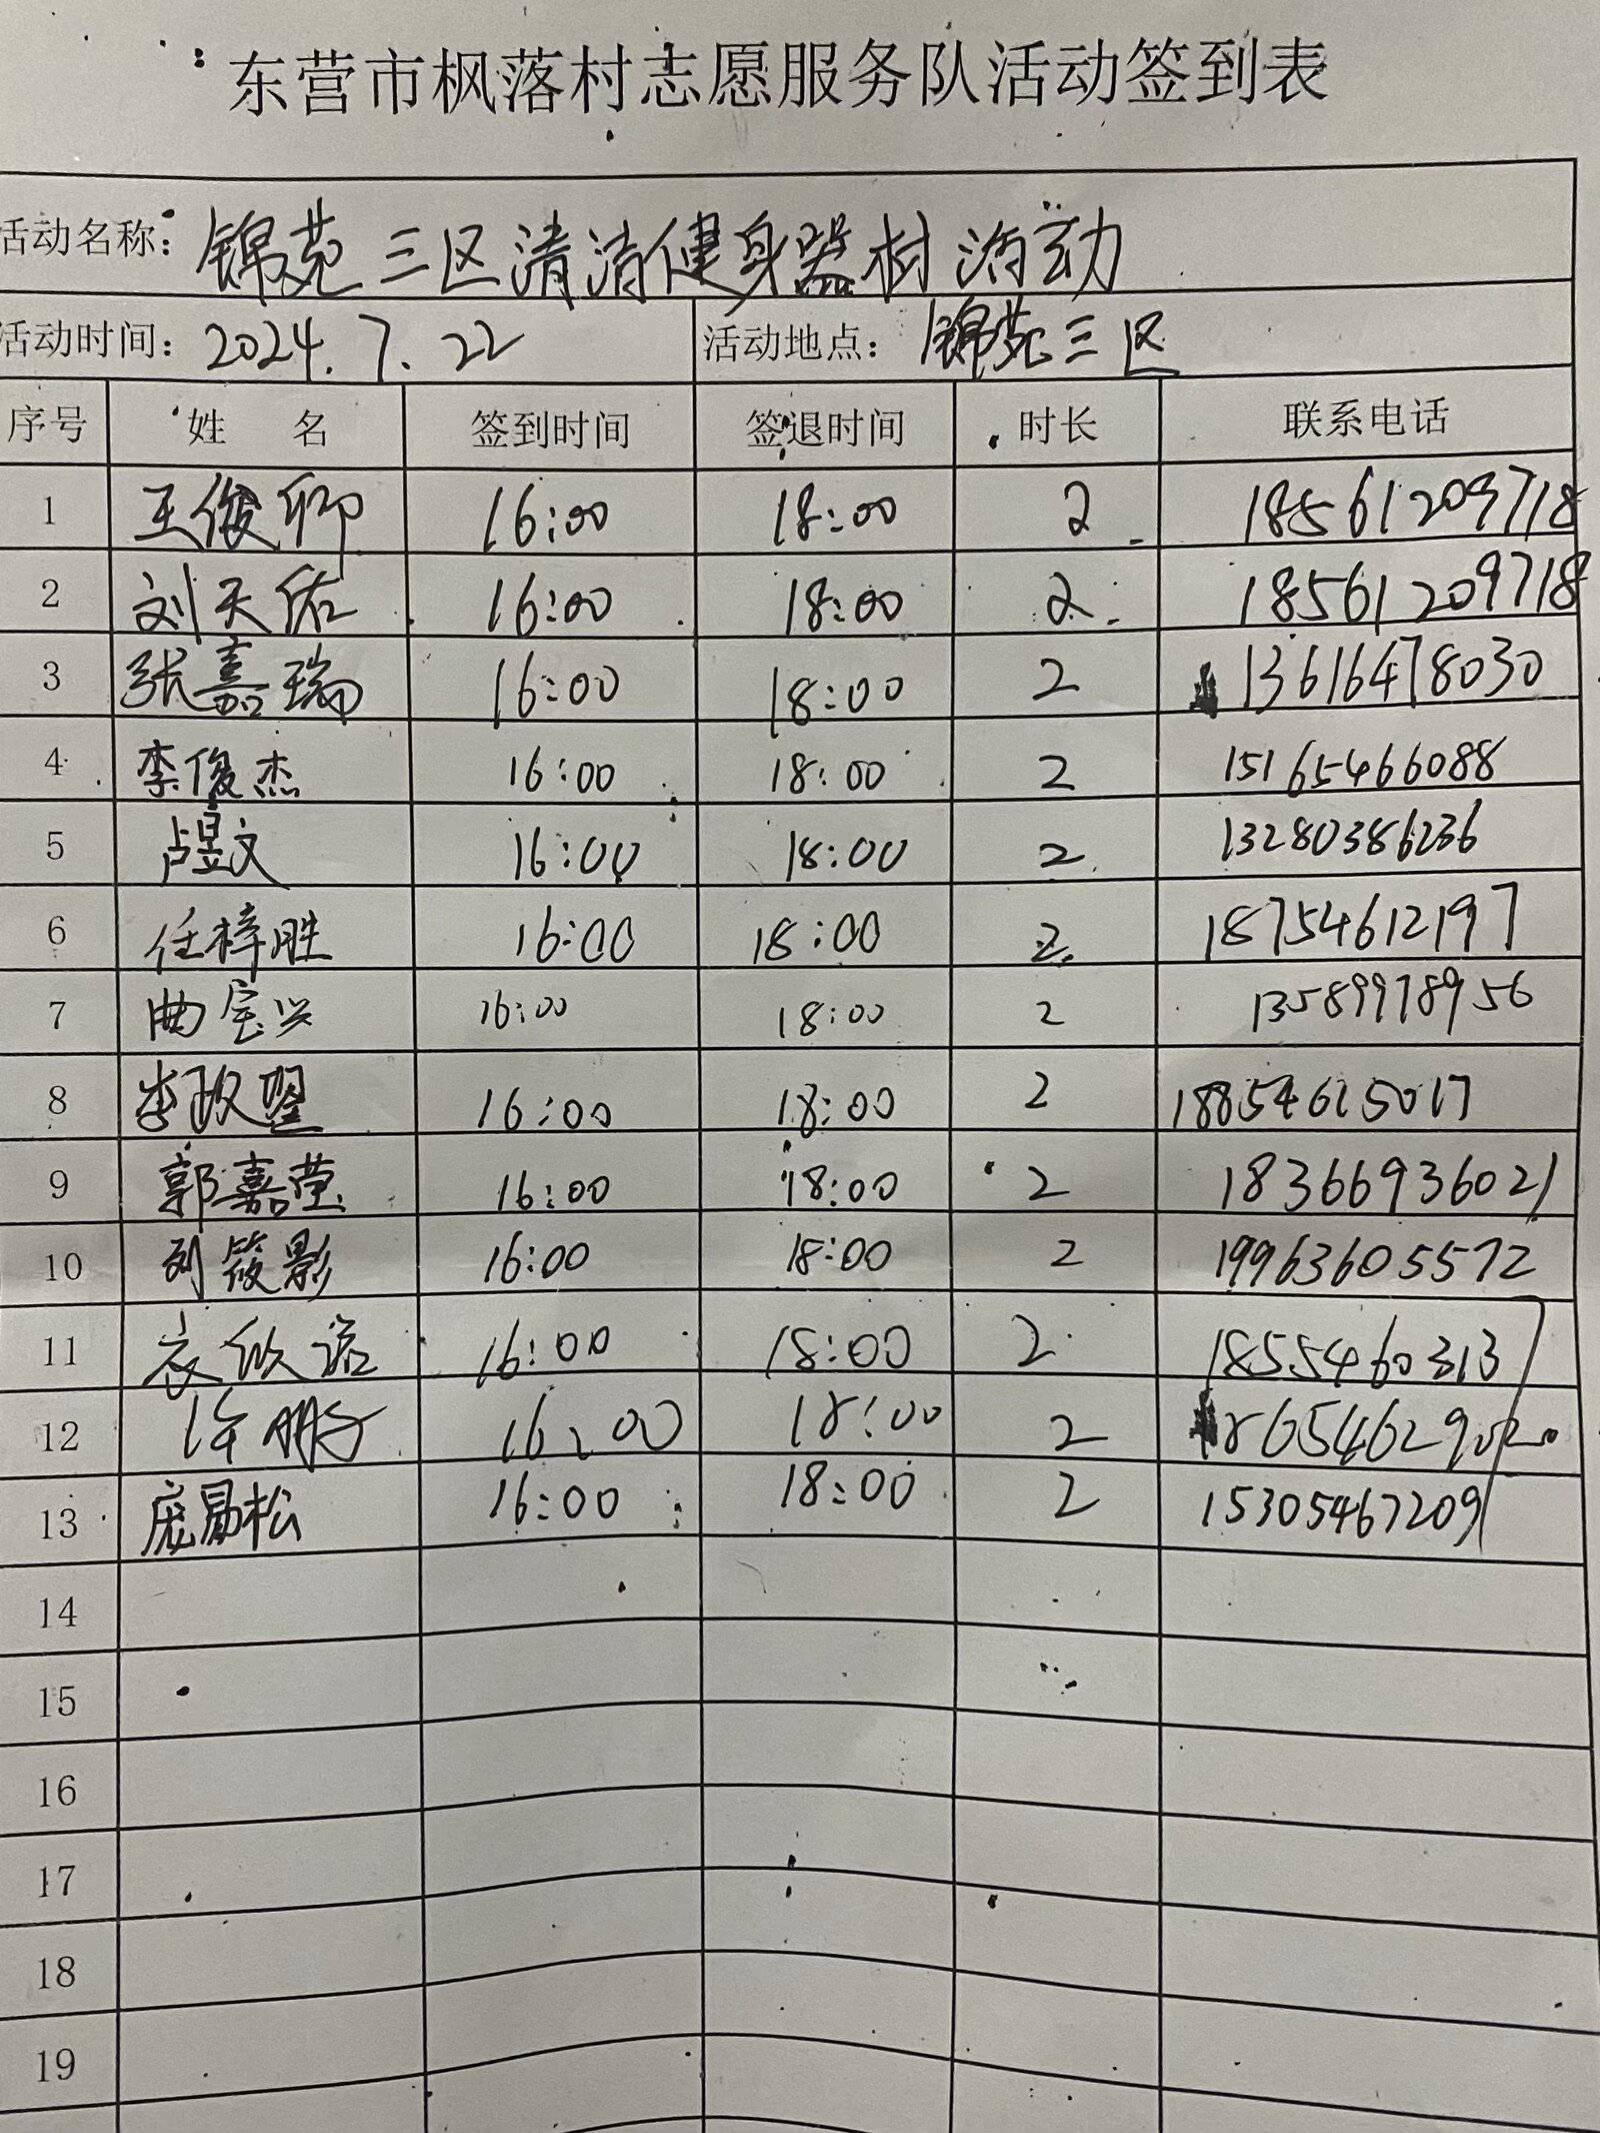 东营市枫落村志愿服务队活动签到表
活动名称：锦苑三区清洁健身器材活动
活动时间：2024.7.22 活动地点：锦苑三区
序号 姓 名 签到时间 签退时间 时长 联系电话
1 王俊卿 16:00 18:00 2 18561209718
2 刘天佑 16:00 18:00 2 18561209718
3 张嘉瑞 16:00 18:00 2 13616478030
4 李俊杰 16:00 18:00 2 15165466088
5 卢昱文 16:00 18:00 2 13280386236
6 任梓胜 16:00 18:00 2 18754612197
7 曲宝兴 16:00 18:00 2 13589978956
8 李政曌 16:00 18:00 2 18854615017
9 郭嘉莹 16:00 18:00 2 18366936021
10 刘筱影 16:00 18:00 2 19963605572
11 袁欣诺 16:00 18:00 2 18554603137
12 徐鹏子 16:00 18:00 2 18654629020
13 庞勖松 16:00 18:00 2 15305467209
14
15
16
17
18
19